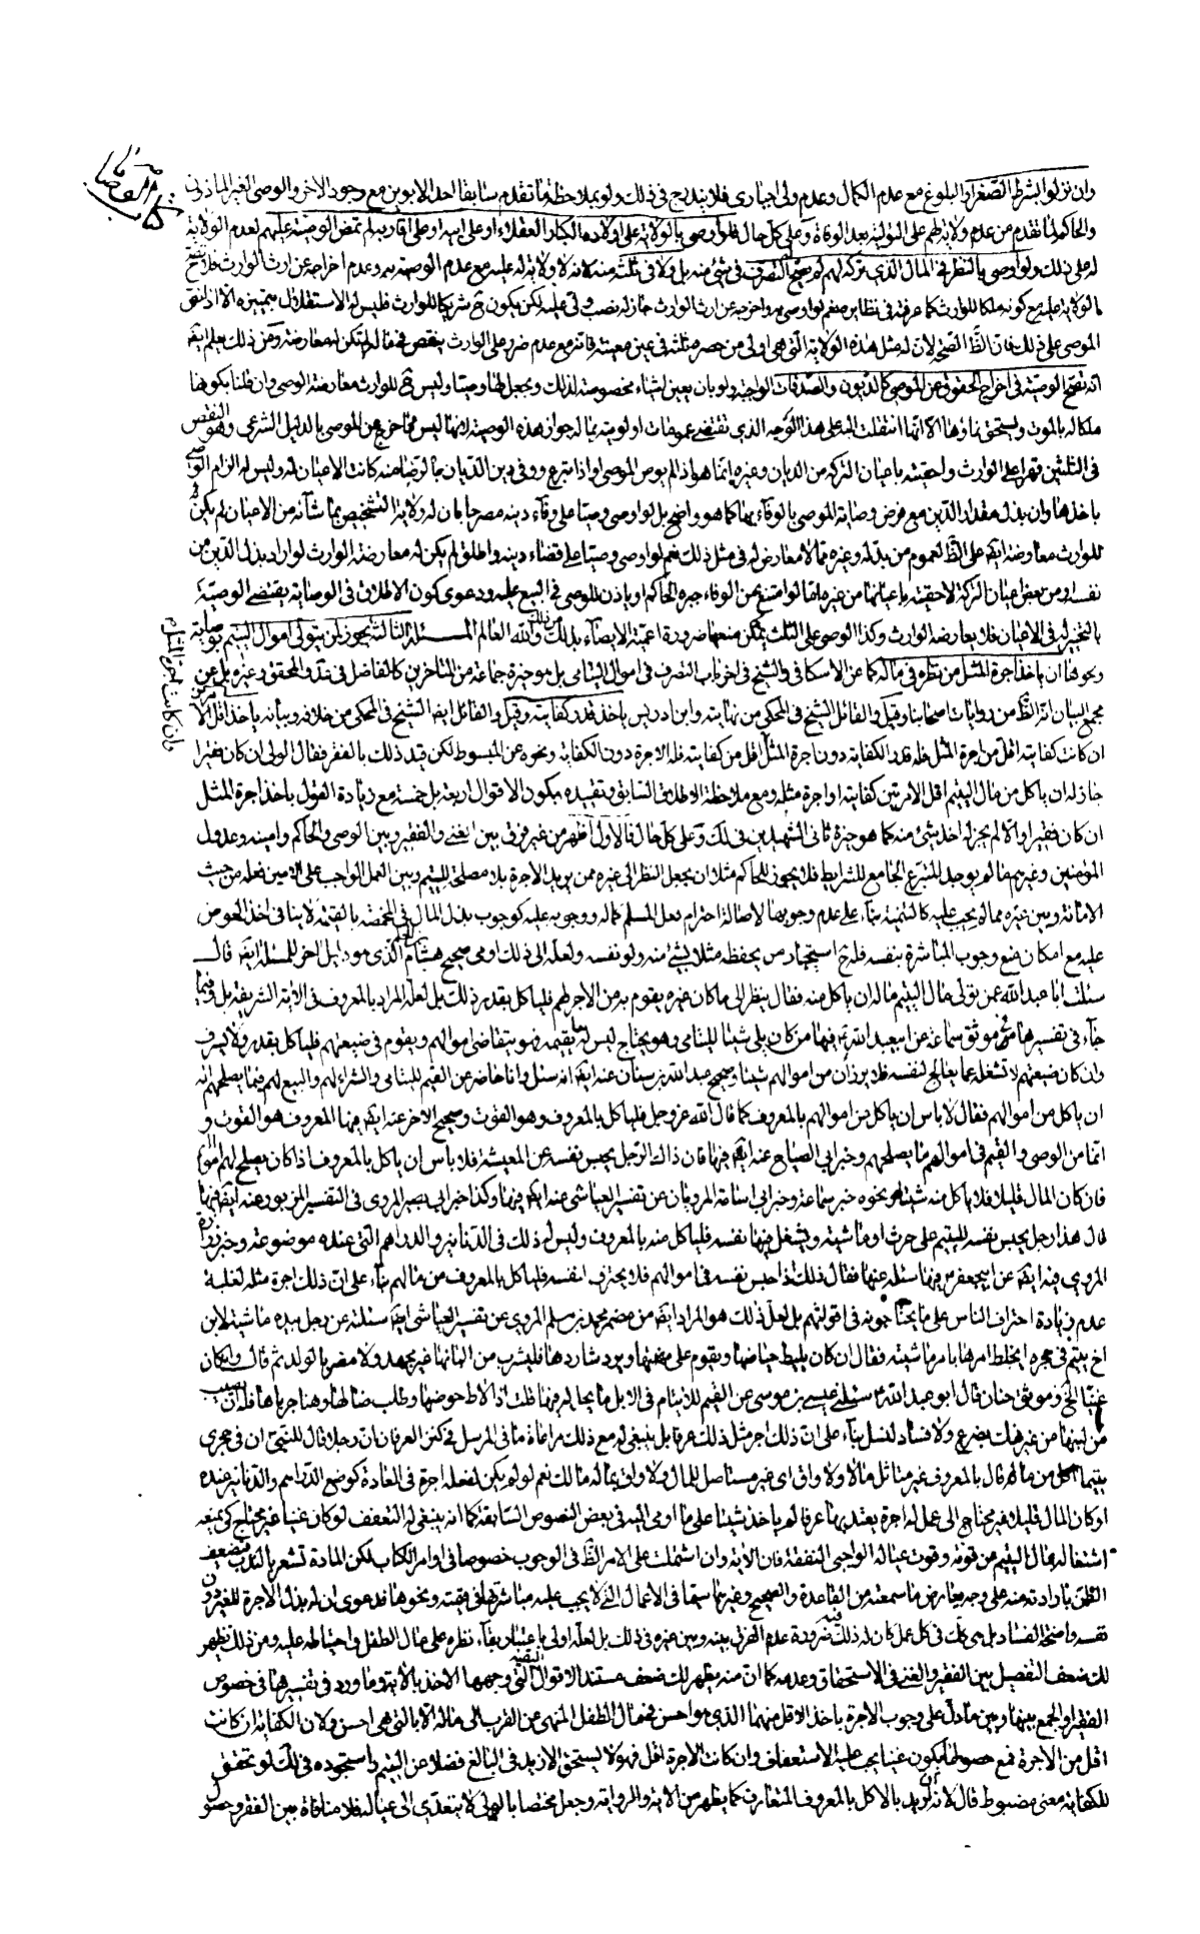 كتاب الوصايا
وان نزلوا لشرط الصغر او البلوغ مع عدم الكمال وعدم ولى اجبارى فلا يندرج فى ذلك ولو بملاحظة ما تقدم سابقا احد الابوين مع وجود الاخر والوصى الغير الماذون
والحاكم لما تقدم من عدم ولايتهم على التولية بعد الوفاة وعلى كل حال فلو اوصى بالولاية على اولاده الكبار العقلاء او على ابيه او على اقاربه لم تمض الوصية عليهم لعدم الولاية
له على ذلك ولو اوصى بالنظر فى المال الذى يتركه لهم لم يصح التصرف فى شئ منه بل ولا فى ثلثه منه لانه لا ولاية له عليه مع عدم الوصية به وعدم اخراجه عن ارث الوارث فلا تصح
الولاية عليه مع كونه ملكا للوارث كما عرفته فى نظايره نعم لو اوصى به واخرجه عن ارث الوارث جاز له نصب ولى عليه لكن يكون ح شريكا للوارث فليس له الاستقلال بتمييزه الا اذا نص
الموصى على ذلك فان الظ الصحة لان له مثل هذه الولاية التى هى اولى من حصر ثلثه فى عين معينة
انه تصح الوصية فى اخراج الحقوق عن الموصى كالديون والصدقات الواجبة ولو بان يعين اشياء مخصوصة لذلك ويجعل لها وصيا وليس ح للوارث معارضة الوصى وان قلنا بكونها
ملكا له بالموت ويستحق نماؤها الا انها انتقلت اليه على هذا الوجه الذى تقتضيه عمومات الوصية
فى الثلثين قهرا على الوارث واحقيته باعيان التركة من الديان وغيره انما هو اذا لم يوص الموصى
باخذها وان بذل مقدار الدين مع فرض وصاية الموصى بالوفاء بها كما هو واضح بل لو اوصى وصيا على وفاء دينه مصرحا بان له ولاية التشخيص بما شاء من الاعيان لم يكن
للوارث معارضة ايضا على الظ لعموم من بدله وغيره نعم لو اوصى وصيا على قضاء دينه واطلق لم يكن له معارضة الوارث لو اراد بذل الدين من
نفسه او من بعض اعيان التركة لاحقيته باعيانها من غيره اما لو امتنع من الوفاء جبره الحاكم او ياذن للوصى فى البيع عليه ودعوى كون الاطلاق فى الوصاية يقتضى الوصية
بالتخيير له فى الاعيان فلا يعارضه الوارث وكذا الوصى على الثلث يمكن منعها ضرورة اعمية الايصاء بذلك من ذلك والله العالم المسئلة الثالثة يجوز لمن يتولى اموال اليتيم بوصاية
ونحوها ان ياخذ اجرة المثل عن نظره فى ماله كما عن الاسكافى والشيخ فى اخر باب التصرف فى اموال اليتامى بل هو خيرة جماعة من المتاخرين كالفاضل فى عد والمحقق وغيره بل عن
وان كانت اجرة المثل
مجمع البيان انه الظ من روايات اصحابنا وقيل والقائل الشيخ فى المحكى من نهايته وابن ادريس ياخذ قدر كفايته وقيل والقائل ايضا الشيخ فى المحكى من خلافه وتبيانه ياخذ اقل الامرين
ان كانت كفايته اقل من اجرة المثل فله قدر الكفاية دون اجرة المثل اقل من كفايته فله الاجرة دون الكفاية ونحوه عن المبسوط لكن قيد ذلك بالفقر فقال الولى ان كان فقيرا
جاز له ان ياكل من مال اليتيم اقل الامرين كفايته او اجرة مثله ومع ملاحظة الاطلاق السابق وتقييده يكون الاقوال اربعة بل خمسة مع زيادة القول باخذ اجرة المثل
ان كان فقيرا والا لم يجز له اخذ شئ منه كما هو خيرة ثانى الشهيدين فى لك وعلى كل حال فالاول اظهر من غير فرق بين الغنى والفقير وبين الوصى والحاكم وامينه وعدول
المؤمنين وغيرهم ما لم يوجد المتبرع الجامع للشرايط فلا يجوز للحاكم مثلا ان يجعل النظر الى غيره ممن يريد الاجرة بلا مصلحة لليتيم وبين العمل الواجب على الامين فعله من حيث
الامانة وبين غيره مما لا يجب عليه كالتنمية بناء على عدم وجوبها لاصالة احترام فعل المسلم كماله ووجوبه عليه كوجوب بذل المال فى المخمصة بالقيمة لا ينافى اخذ العوض
عليه مع امكان منع وجوب المباشرة بنفسه فله ح استيجار من يحفظه مثلا بشئ منه ولو نفسه ولعله الى ذلك اومى صحيح هشام بن الحكم الذى هو دليل اخر للمسئلة ايضا قال
سئلت ابا عبد الله عمن تولى مال اليتيم ماله ان ياكل منه فقال ينظر الى ما كان غيره يقوم به من الاجر لهم فلياكل بقدر ذلك بل لعله المراد بالمعروف فى الاية الشريفة بل وفيما
جاء فى تفسيرها من موثق سماعة عن ابيعبد الله ع فيها من كان يلى شيئا لليتامى وهو يحتاج ليس له ما يقيمه فهو يتقاضى اموالهم ويقوم فى ضيعتهم فلياكل بقدر ولا يسرف
وان كان ضيعتهم لا تشغله عما يعالج لنفسه فلا يرزأن من اموالهم شيئا وصحيح عبد الله بن سنان عنه ايضا انه سئل وانا حاضر عن القيم لليتامى والشراء لهم والبيع لهم فيما يصلحهم اله
ان ياكل من اموالهم فقال لا باس ان ياكل من اموالهم بالمعروف كما قال الله عز وجل فلياكل بالمعروف وهو القوت وصحيح الاخر عنه ايضا فيها المعروف هو القوت و
انما عن الوصى والقيم فى اموالهم ما يصلحهم وخبر ابى الصباح عنه ايضا فيها فان ذاك الرجل يحبس نفسه عن المعيشة فلا باس ان ياكل بالمعروف اذا كان يصلح لهم اموالهم
فان كان المال قليلا فلا ياكل منه شيئا ونحوه خبر سماعة وخبر ابى اسامة المرويان عن تفسير العياشى عنه ايضا فيها وكذا خبر ابى بصير المروى فى التفسير المزبور عنه ايضا فيها
قال هذا رجل يحبس نفسه لليتيم على حرث او ماشية ويشغل فيها نفسه فلياكل منه بالمعروف وليس له ذلك فى الدنانير والدراهم التى عنده موضوعة وخبر زرارة
المروى فيه ايضا عن ابيجعفر ع فيها سئلته عنها فقال ذلك اذا حبس نفسه فى اموالهم فلا يحترف لنفسه فلياكل بالمعروف من مالهم بناء على ان ذلك اجرة مثله لغلبة
عدم زيادة احتراف الناس على ما يحتاجونه فى اقواتهم بل لعل ذلك هو المراد ايضا من مضمر محمد بن مسلم المروى عن تفسير العياشى ايضا سئلته عن رجل بيده ماشية لابن
اخ يتيم فى حجره ايخلط امرها بامر ماشيته فقال ان كان يليط حياضها ويقوم على مهنتها ويرد شاردها فليشرب من البانها غير مجهد ولا مضر بالولد ثم قال ومن كان
غنيا الخ وموثق حنان قال ابو عبد الله ع سئلنى عيسى بن موسى عن القيم للايتام فى الابل ما يحل له منها قلت اذا لاط حوضها وطلب ضالتها وهنا جرباها فله ان يصيب
من لبنها من غير نهك بضرع ولا فساد لنسل بناء على ان ذلك اجر مثل ذلك عرفا بل ينبغى له مع ذلك مراعاة ما فى المرسل فى كنز العرفان ان رجلا قال للنبى ص ان فى حجرى
يتيما اآكل من ماله قال بالمعروف غير متاثل مالا ولا واق اى غير مستاصل للمال ولا واق بماله مالك نعم لو لم يكن لفعله اجرة فى العادة كوضع الدراهم والدنانير عنده
او كان المال قليلا غير محتاج الى عمل له اجرة يعتد بها عرفا لم ياخذ شيئا على ما اومى اليه فى بعض النصوص السابقة كما انه ينبغى له التعفف لو كان غنيا غير محتاج
اشتغاله بمال اليتيم من قوته وقوت عياله الواجبى النفقة فان الاية وان اشتملت على الامر الظ فى الوجوب خصوصا فى اوامر الكتاب لكن المادة تشعر بالندب فتضعيف
الظن بارادته منه على وجه يعارض ما سمعته من القاعدة والصحيح وغيرهما سيما فى الاعمال التى لا يجب عليه مباشرتها ونحوها فدعوى ان له بذل الاجرة للغير دون
نفسه واضحة الفساد بل هى كك فى كل عمل كان له ذلك فيه ضرورة عدم الفرق بينه وبين غيره فى ذلك بل لعله اولى باعتبار بقاء نظره على مال الطفل واحتياطه عليه ومن ذلك يظهر
لك ضعف التفصيل بين الفقير والغنى فى الاستحقاق وعدمه كما ان منه يظهر لك ضعف مستند الاقوال البقية التى وجهها الاخذ بالاية وما ورد فى تفسيرها فى خصوص
الفقير او الجمع بينها وبين ما دل على وجوب الاجرة باخذ الاقل منهما الذى هو احسن فى مال الطفل المنهى عن القرب الى ماله الا بالتى هى احسن ولان الكفاية ان كانت
اقل من الاجرة فمع حصولها يكون غنيا يجب عليه الاستعفاف وان كانت الاجرة اقل فهو لا يستحق الازيد فى البالغ فضلا عن اليتيم واستجوده فى لك لو تحقق
للكفاية معنى مضبوط قال لانه ان اريد بالاكل بالمعروف المتعارف كما يظهر من الاية والرواية وجعل مختصا بالولى لا يتعدى الى عياله فلا منافاة بين الفقر وحصول